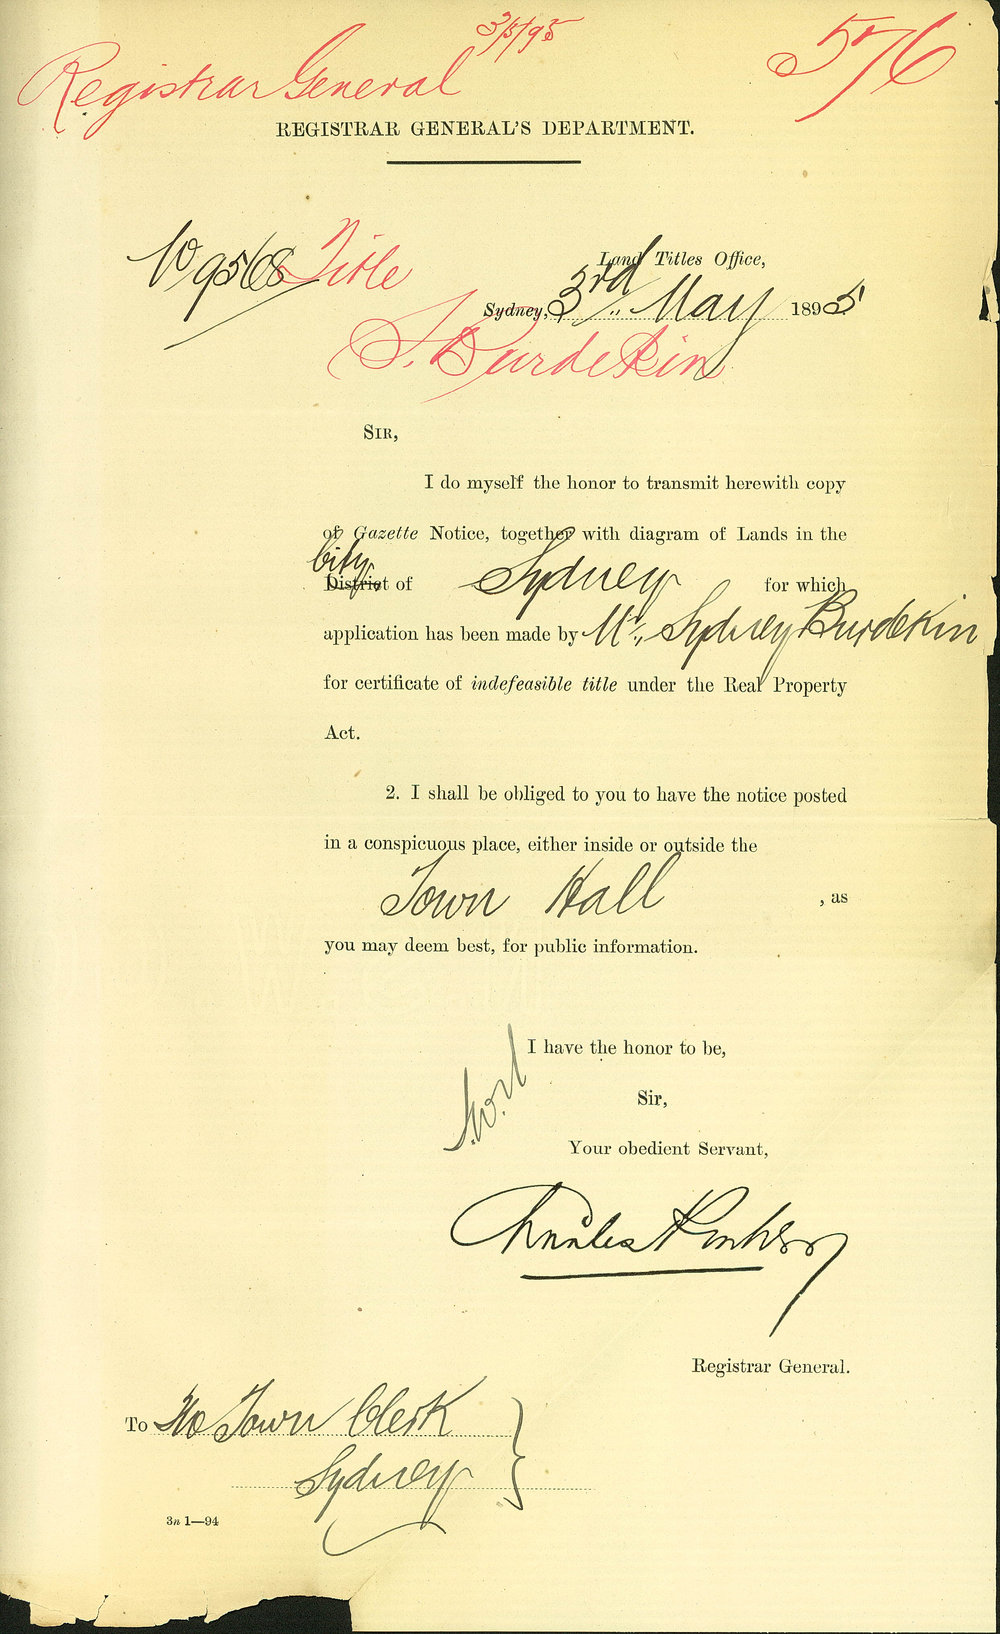 3/5/95
576
Registrar General
REGISTRAR GENERAL'S DEPARTMENT.
No 9568 Title
Land Titles Office,
Sydney, 3rd May 1895
S. Burdekin
SIR,
I do myself the honor to transmit herewith copy
of Gazette Notice, together with diagram of Lands in the
City
District of Sydney for which
application has been made by Mr. Sydney Burdekin
for certificate of indefeasible title under the Real Property
Act.
2. I shall be obliged to you to have the notice posted
in a conspicuous place, either inside or outside the
Town Hall , as
you may deem best, for public information.
I have the honor to be,
Sir,
Your obedient Servant,
Charles
Registrar General.
To The Town Clerk
Sydney
3n 1—94